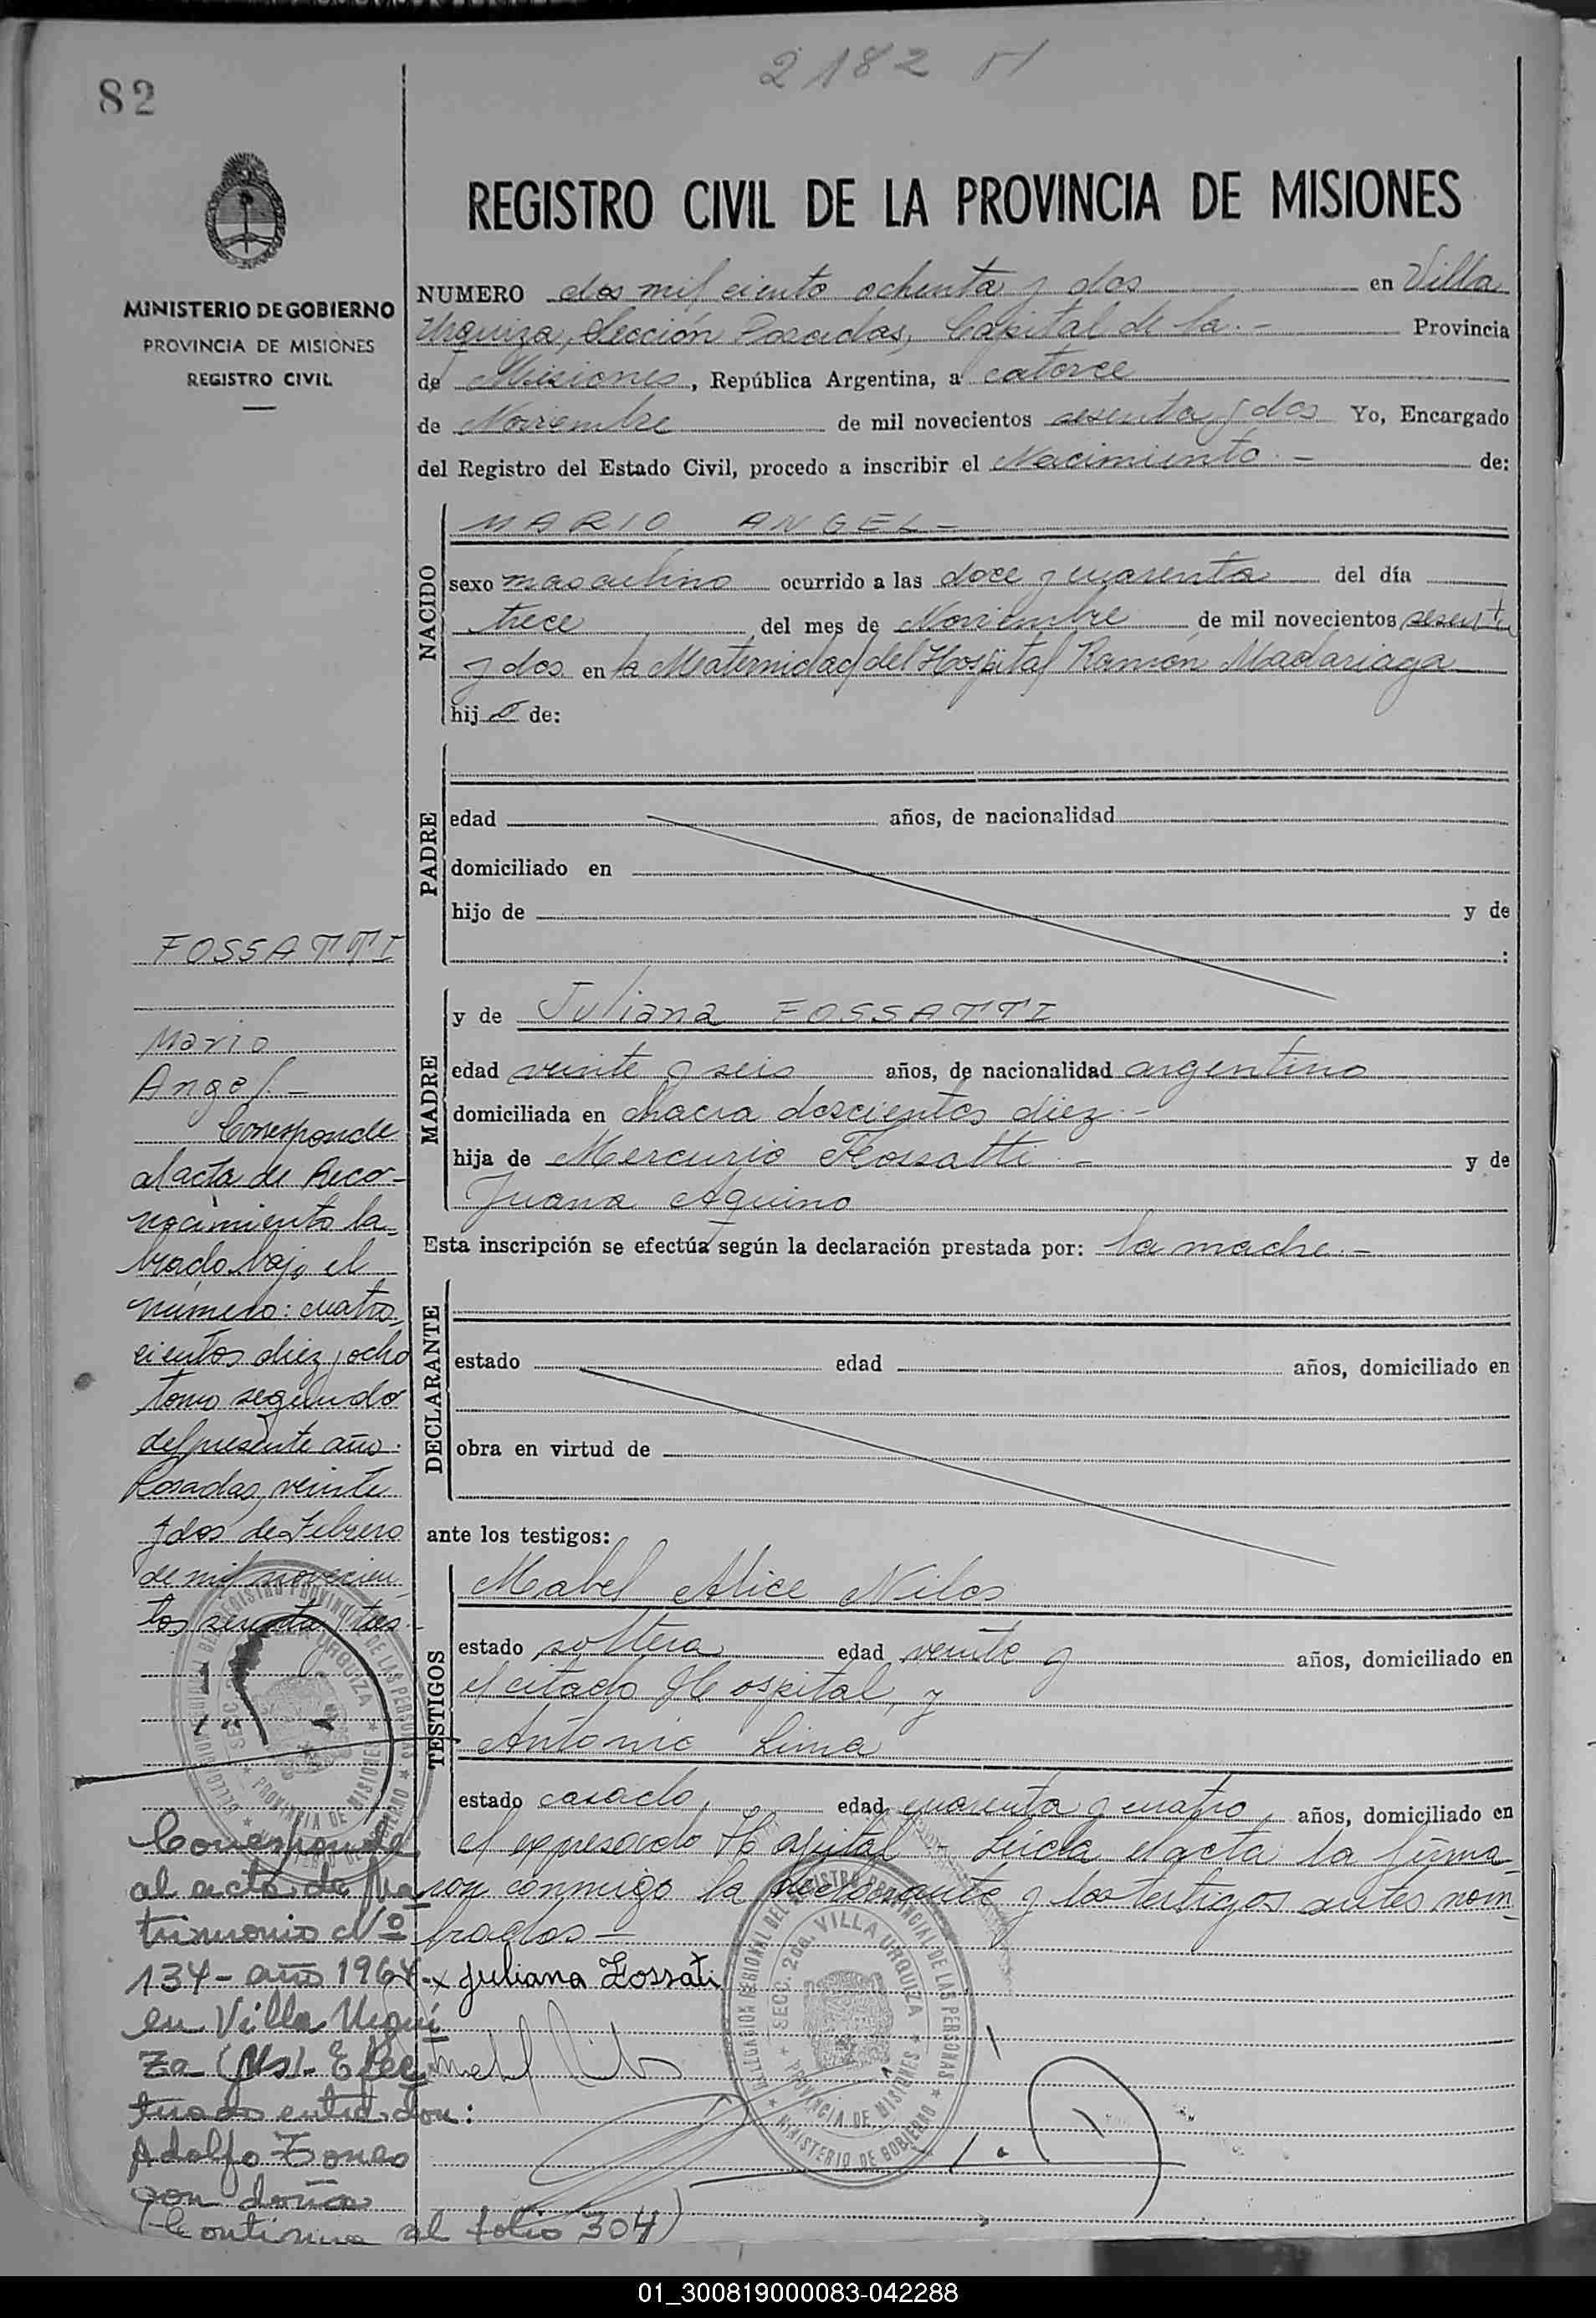 2182
82
REGISTRO CIVIL DE LA PROVINCIA DE MISIONES
MINISTERIO DE GOBIERNO
PROVINCIA DE MISIONES
REGISTRO CIVIL
NUMERO dos mil ciento ochenta y dos en Villa
Urquiza, Sección Posadas, Capital de la.- Provincia
de Misiones, República Argentina, a catorce
de Noviembre de mil novecientos sesenta y dos Yo, Encargado
del Registro del Estado Civil, procedo a inscribir el Nacimiento.- de:
NACIDO
MARIO ANGEL-
sexo masculino ocurrido a las doce y cuarenta del día
trece del mes de Noviembre de mil novecientos sesenta
y dos en la Maternidad del Hospital Ramón Madariaga
hijo de:
PADRE
edad años, de nacionalidad
domiciliado en
hijo de y de
:
MADRE
y de Juliana FOSSATTI
edad veinte y seis años, de nacionalidad argentino
domiciliada en chacra doscientos diez.-
hija de Mercurio Fossatti - y de
Juana Aquino
Esta inscripción se efectúa según la declaración prestada por: la madre.-
DECLARANTE
estado edad años, domiciliado en
obra en virtud de
ante los testigos:
TESTIGOS
Mabel Alice Nilos
estado soltera edad veinte y años, domiciliado en
el citado Hospital, y
Antonio Lima
estado casado, edad cuarenta y cuatro, años, domiciliado en
el expresado Hospital - Leída el acta la firma-
ron conmigo la declarante y los testigos antes nom-
brados-
x Juliana Fossati
FOSSATTI
Mario
Angel.-
Corresponde
al acta de Reco-
nocimiento la-
brado bajo el
número: cuatro-
cientos diez y ocho
tomo segundo
del presente año.
Posadas, veinte
y dos de Febrero
de mil novecien-
tos sesenta y tres.-
Corresponde
al acta de Ma-
trimonio Nº
134- año 1964.-
en Villa Urqui
za (Ms). Efec
tuado entre don:
Adolfo
con doña
(Continua al folio 304)
DELEGACION REGIONAL DEL REGISTRO PROVINCIAL DE LAS PERSONAS
MINISTERIO DE GOBIERNO
SECC. 2da. VILLA URQUIZA
PROVINCIA DE MISIONES
01_300819000083-042288